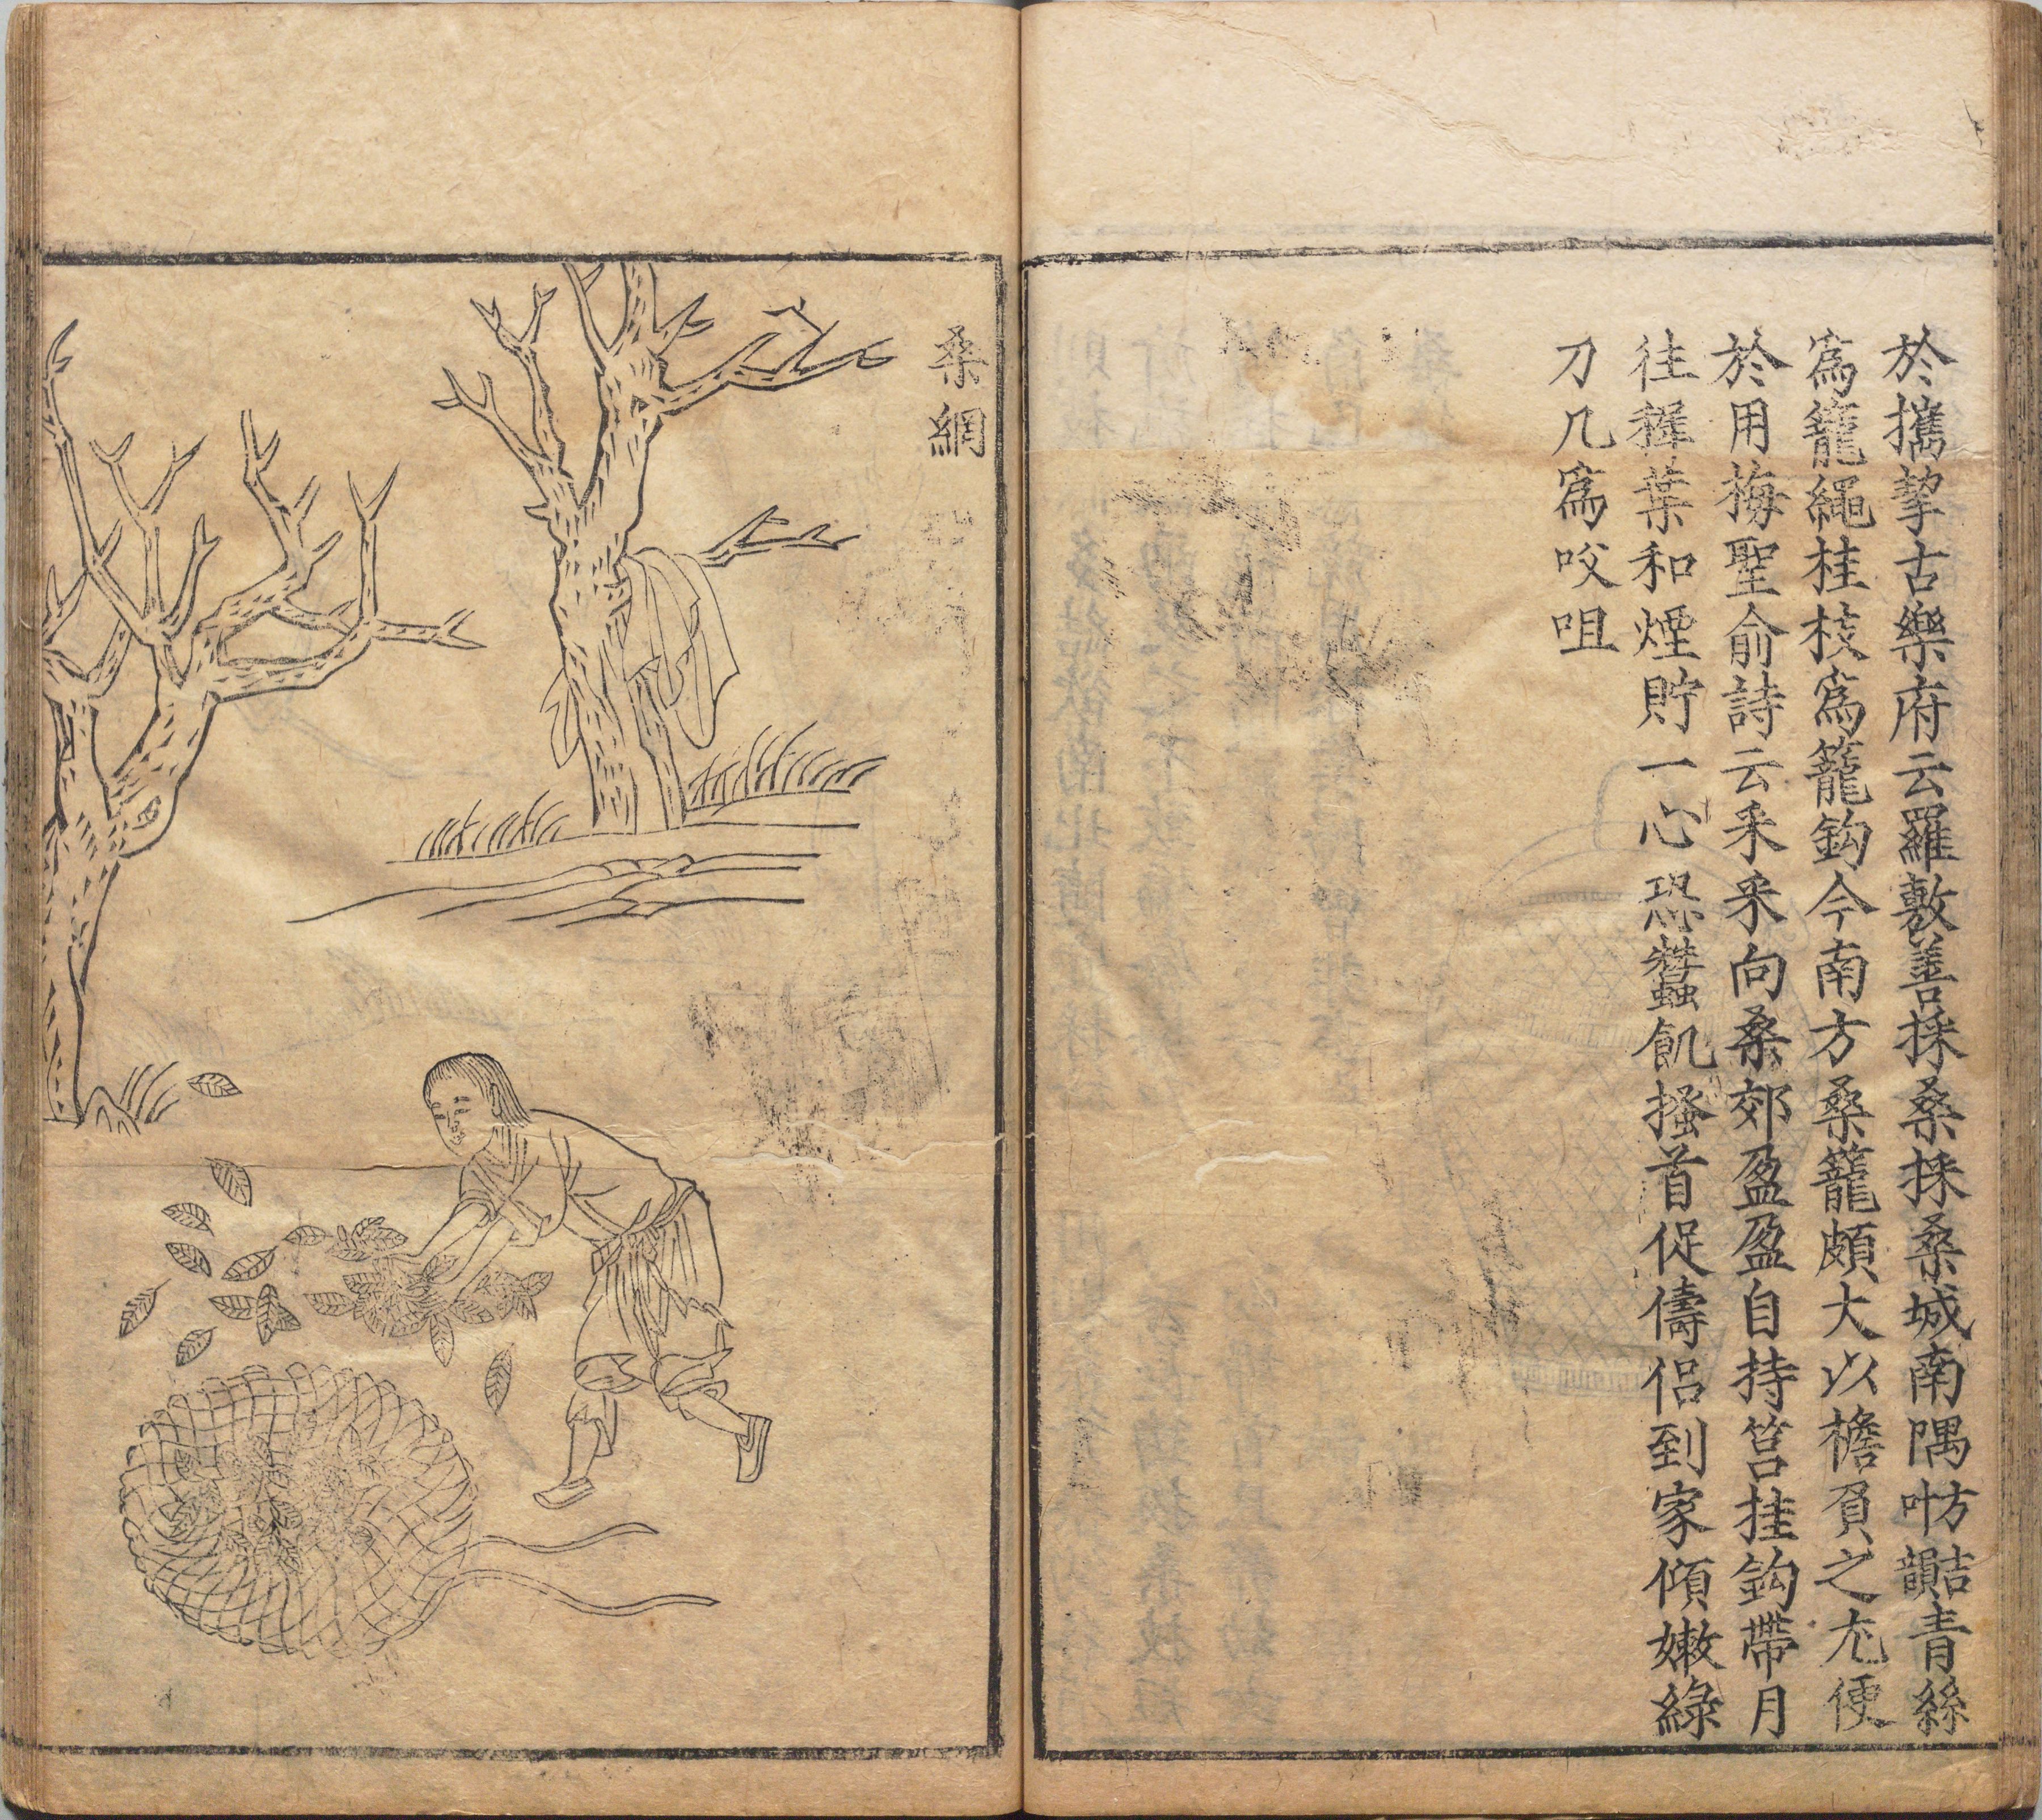 於攜挈古樂府云羅敷善採桑採桑城南隅叶方詰韻青絲
爲籠繩桂枝爲籠鈎今南方桑籠頗大以檐負之尤便
於用梅聖俞詩云采采向桑郊盈盈自持筥挂鈎帶月
往稚葉和煙貯一心恐蠶飢搔首促儔侣到家傾嫩綠
刀几爲㕮咀
桑網